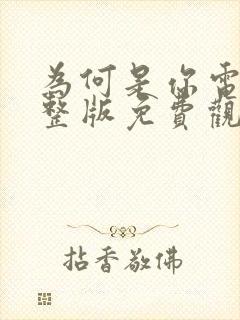 為何是你電
整版免費觀
拈香敬佛